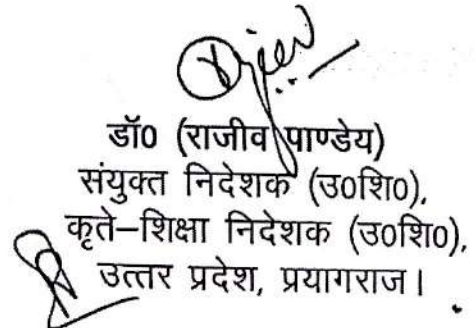 डॉ0 (राजीव पाण्डेय)
संयुक्त निदेशक (उ0शि0),
कृते–शिक्षा निदेशक (उ0शि0),
उत्तर प्रदेश, प्रयागराज।